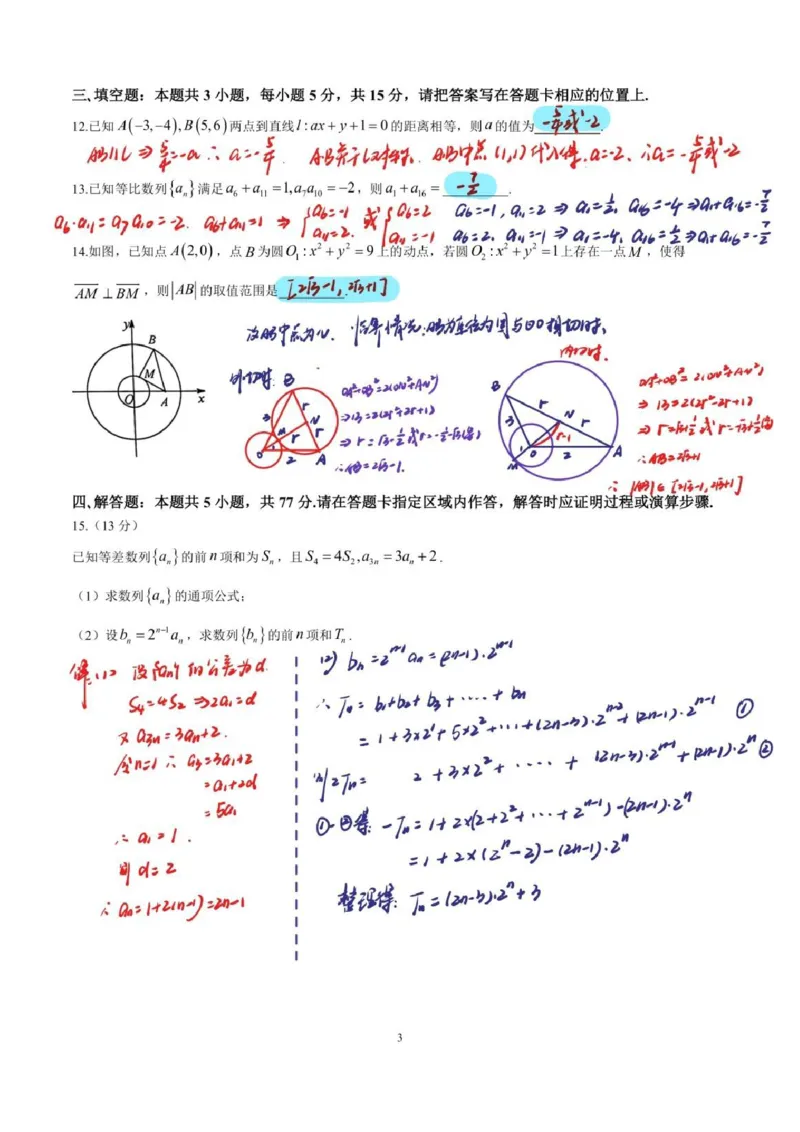 三、填空题：本题共 3 小题，每小题 5 分，共 15 分，请把答案写在答题卡相应的位置上.
12.已知 A(-3,-4), B(5,6) 两点到直线 l: ax + y + 1 = 0 的距离相等，则 a 的值为 -5/4或-2 .
AB∥l ⇒ 5/4=-a ∴ a=-5/4 . AB关于l对称. AB中点(1,1)代入得. a=-2. ∴a=-5/4或-2
13.已知等比数列{aₙ}满足 a₆ + a₁₁ = 1, a₇a₁₀ = -2，则 a₁ + a₁₆ = -7/2 .
a₆·a₁₁=a₇a₁₀=-2. a₆+a₁₁=1 ⇒ {a₆=-1 a₁₁=2. 或 {a₆=2 a₁₁=-1
a₆=-1, a₁₁=2 ⇒ a₁=1/2, a₁₆=-4 ⇒a₁+a₁₆=-7/2
a₆=2, a₁₁=-1 ⇒ a₁=-4, a₁₆=1/2 ⇒a₁+a₁₆=-7/2
14.如图，已知点 A(2,0)，点 B 为圆 O₁: x² + y² = 9 上的动点，若圆 O₂: x² + y² = 1 上存在一点 M，使得
AM ⊥ BM，则 |AB| 的取值范围是 [2√3-1, 2√3+1]
y
B
M
O
A
x
设AB中点为N. 临界情况:AB为直径的圆与⊙O相切时.
外切时.
B
3
r
N
M
r
r
1
O
2
A
OA²+OB²=2(ON²+AN²)
⇒13=2(2r²+2r+1)
⇒ r=√3-1/2 或r=-1/2-√3(舍)
∴AB=2√3-1.
内切时.
B
r
3
N
r
r-1
O
2
A
M
OA²+OB²=2(ON²+AN²)
⇒ 13=2(2r²-2r+1)
⇒ r=√3+1/2 或 r=-√3+1/2(舍)
∴AB=2√3+1
∴ |AB|∈[2√3-1,2√3+1]
四、解答题：本题共 5 小题，共 77 分.请在答题卡指定区域内作答，解答时应证明过程或演算步骤.
15.（13 分）
已知等差数列{aₙ}的前 n 项和为 Sₙ，且 S₄ = 4S₂, a₃ₙ = 3aₙ + 2 .
（1）求数列{aₙ}的通项公式；
（2）设 bₙ = 2ⁿ⁻¹aₙ，求数列{bₙ}的前 n 项和 Tₙ .
解:(1) 设{aₙ}的公差为d.
S₄=4S₂ ⇒2a₁=d
又 a₃ₙ=3aₙ+2.
令n=1 ∴ a₃=3a₁+2
=a₁+2d
=5a₁
∴ a₁=1.
则 d=2
∴ aₙ=1+2(n-1)=2n-1
(2) bₙ=2ⁿ⁻¹aₙ=(2n-1)·2ⁿ⁻¹
∴ Tₙ= b₁+b₂+b₃+····+bₙ
=1+3×2¹+5×2²+···+(2n-3)·2ⁿ⁻²+(2n-1)·2ⁿ⁻¹ ①
则2Tₙ= 2+3×2²+ ···· + (2n-3)·2ⁿ⁻¹+(2n-1)·2ⁿ ②
①-②得: -Tₙ=1+2×(2+2²+···+2ⁿ⁻¹)-(2n-1)·2ⁿ
=1+2×(2ⁿ-2)-(2n-1)·2ⁿ
整理得: Tₙ=(2n-3)·2ⁿ+3
3